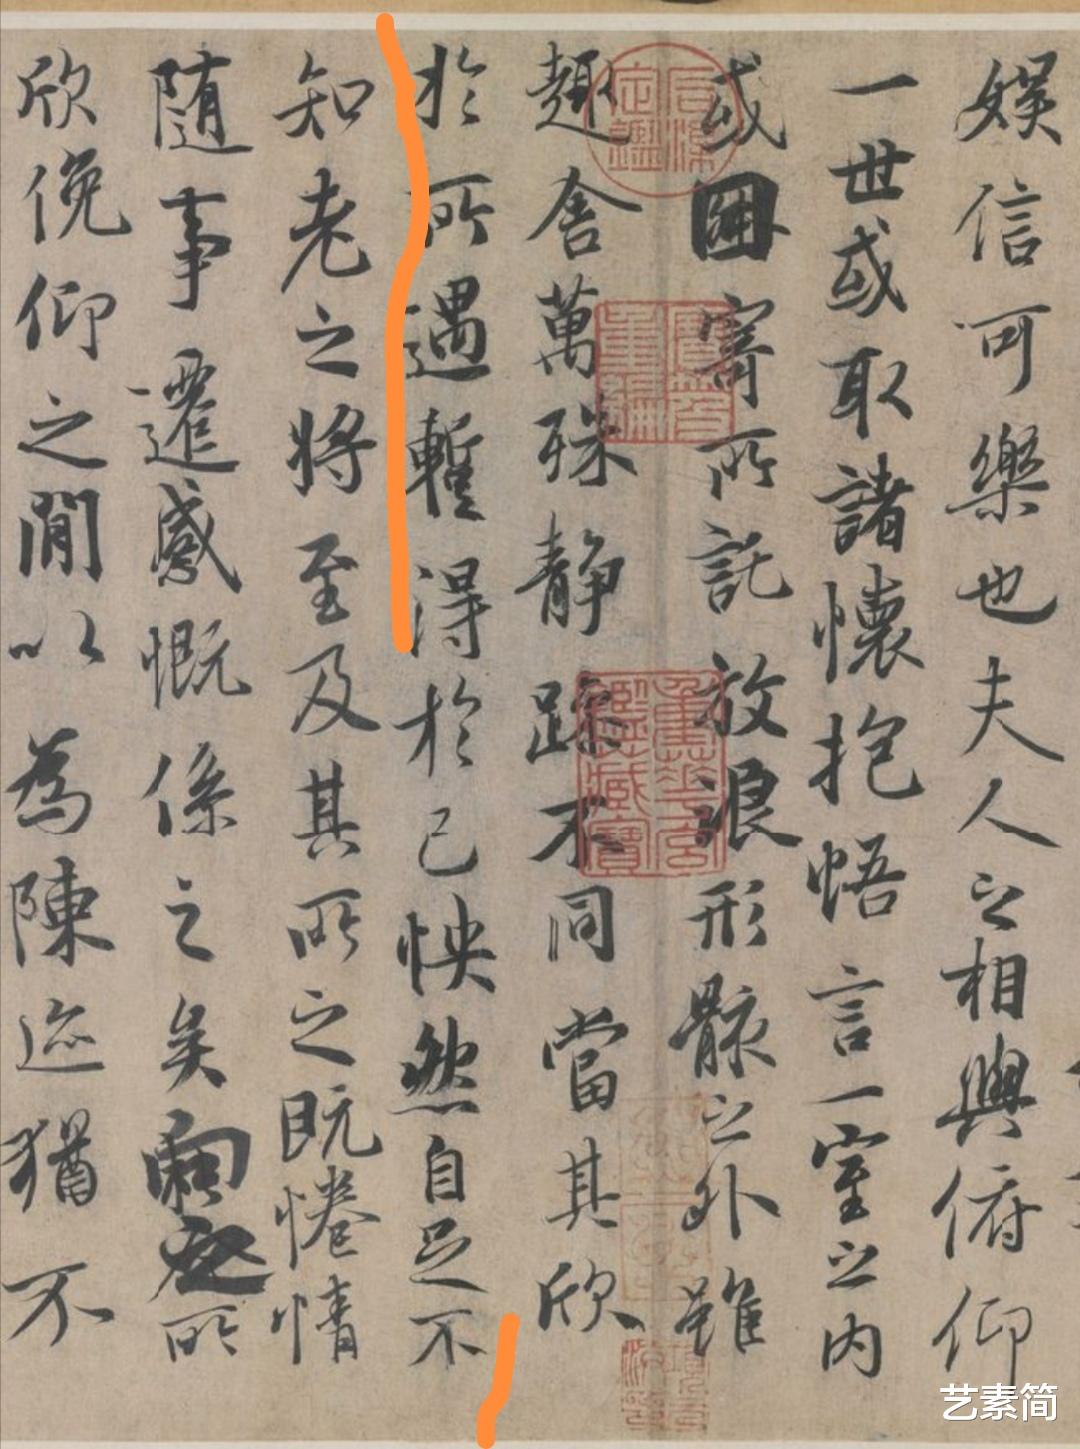 娱信可樂也夫人之相與俯仰
一世或取諸懷抱悟言一室之内
或因寄所託放浪形骸之外雖
趣舍萬殊静躁不同當其欣
於所遇暫得於己怏然自足不
知老之將至及其所之既惓情
隨事遷感慨係之矣向之所
欣俛仰之閒以為陳迹猶不
艺素简